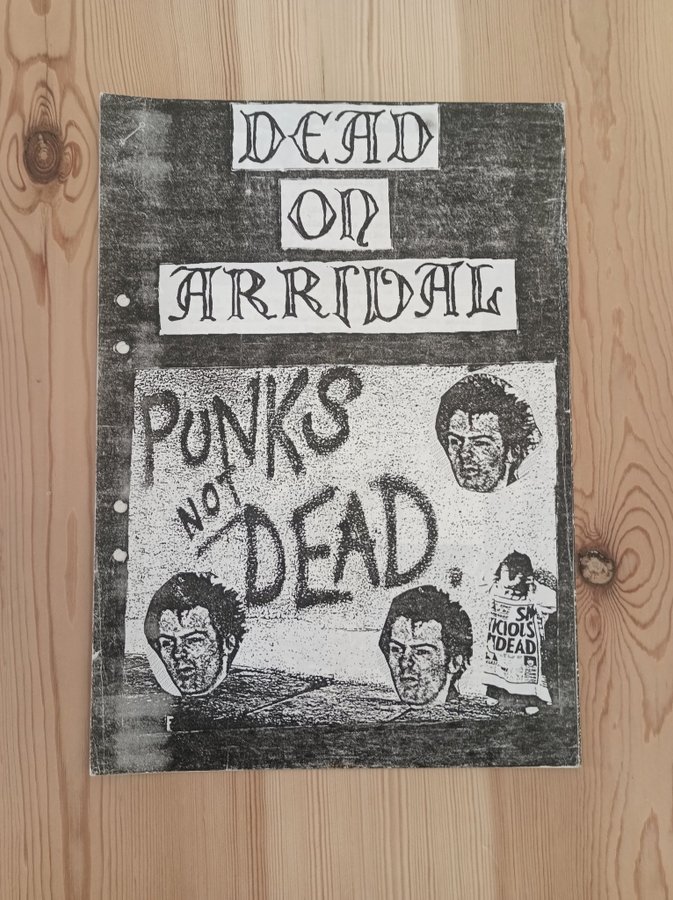 DEAD
ON
ARRIVAL
PUNKS
NOT
DEAD
SID
VICIOUS
DEAD
F